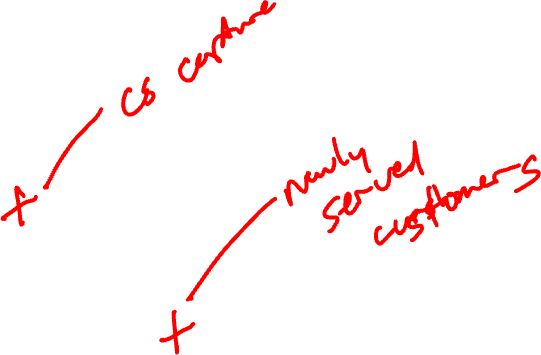 CS capture
+
newly
served
customers
+